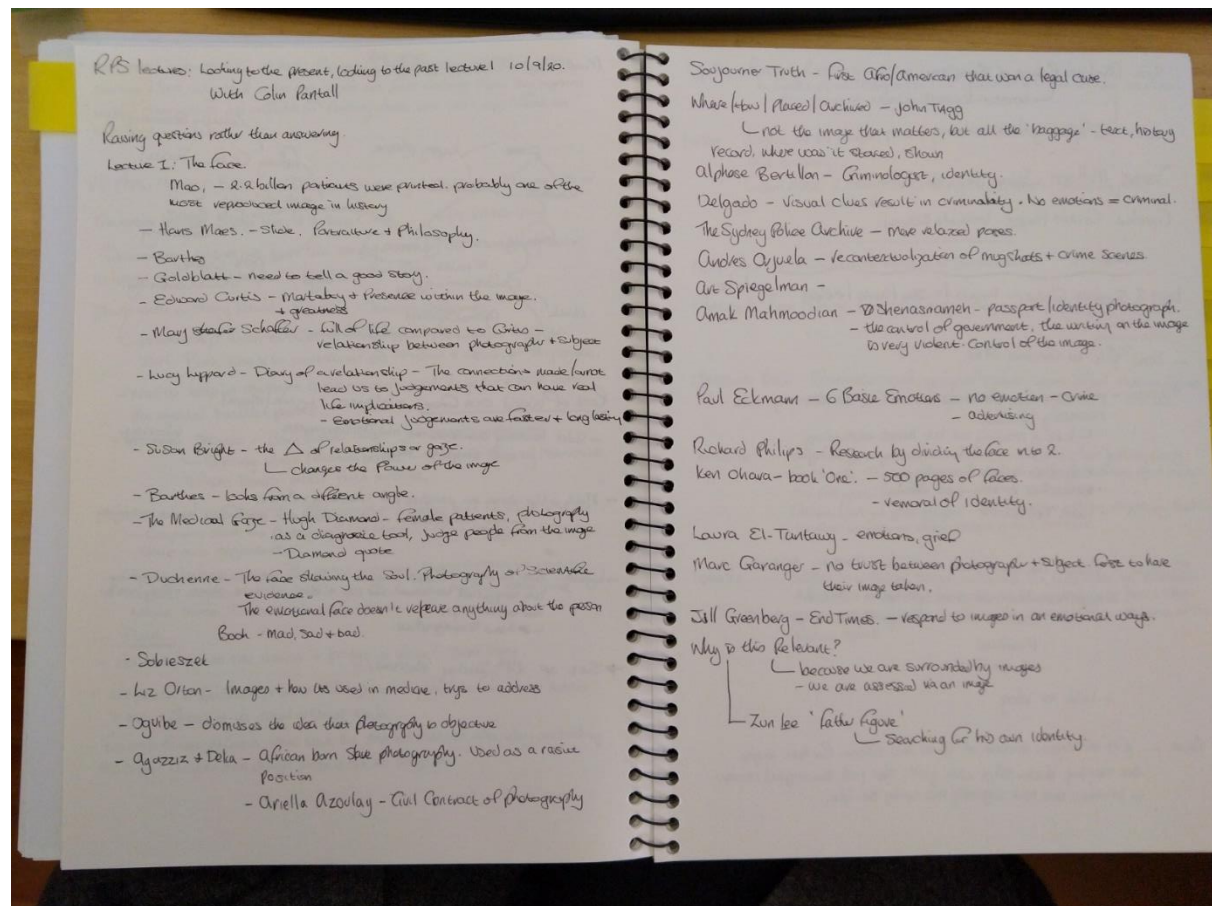 RPS lectures: Looking to the present, looking to the past lecture 1 10/9/20.
With Colin Pantall
Raising questions rather than answering.
Lecture I: The face.
Mao, – 2.2 billion portraits were printed. probably one of the
most reproduced image in history
– Hans Maes. – Portraiture + Philosophy.
– Barthes
– Goldblatt – need to tell a good story.
– Edward Curtis – + Presence within the image.
+ greatness
– Mary Schaffer – full of life compared to Curtis –
relationship between photographer + subject
– Lucy Lippard – Diary of a relationship – The connections made/
lead us to judgements that can have real
life implications.
– Emotional judgements are faster + long lasting
– Susan Bright – the Δ of relationships or gaze.
changes the Power of the image
– Barthes – looks from a different angle.
– The Medical Gaze – Hugh Diamond – female patients, photography
as a diagnostic tool, judge people from the image
– Diamond quote
– Duchenne – The face showing the Soul. Photography as 'Scientific
evidence.
The emotional face doesn't anything about the person
Book – mad, sad + bad.
– Sobieszek
– Liz Orton – Images + how its used in medicine, trys to address
– Oguibe – dismisses the idea that photography is objective
– Agazziz + Delia – African born slave photography. Used as a
position
– Ariella Azoulay – Civil Contract of photography
Soujourner Truth – first Afro/American that won a legal case.
Where/How/Placed/Archived – John Tagg
not the image that matters, but all the 'baggage' – text, history
record, where was it stored, shown
Alphose Bertillon – Criminologist, identity.
Delgado – Visual clues result in criminality. No emotions = criminal.
The Sydney Police Archive – more relaxed poses.
Andres Orjuela – recontextualization of mugshots + crime scenes
Art Spiegelman –
Amak Mahmoodian – Shenasnameh – passport/identity photograph.
– the control of government, the writing on the image
is very violent. Control of the image.
Paul Eckmann – 6 Basic Emotions – no emotion – crime
– advertising
Richard Philips – Research by dividing the face into 2.
Ken Ohara – book 'One'. – 500 pages of faces.
– removal of identity.
Laura El-Tantawy – emotions, grief
Marc Garanger – no trust between photographer + subject. to have
their image taken.
Jill Greenberg – End Times. – respond to images in an emotional ways.
Why is this Relevant?
because we are surrounded by images
– we are assessed via an image
Zun Lee 'father figure'
Searching for his own identity.